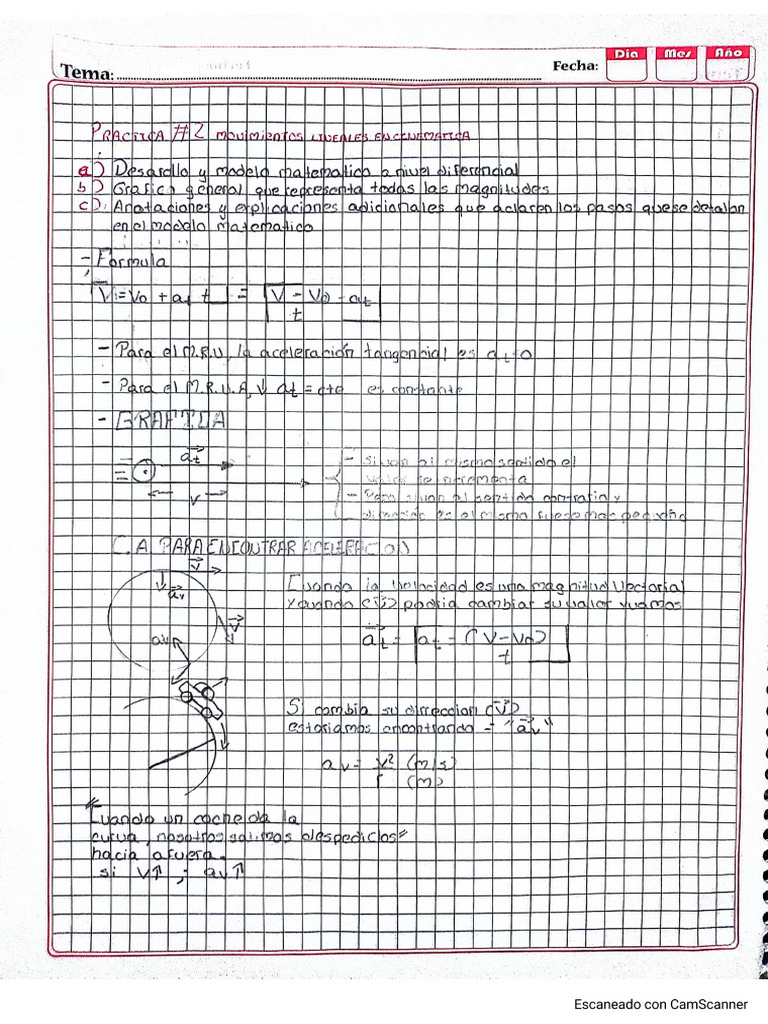 Tema:
Fecha:
Dia Mes Año
PRACTICA #2 MOVIMIENTOS LINEALES EN CINEMATICA
a) Desarollo y modelo matematico a nivel diferencial
b) Grafico general que representa todas las magnitudes
c) Anotaciones y explicaciones adicionales que aclaren los pasos que se detallan
en el modelo matematico
- Formula
V = Vo + at t = V - Vo = at
t
- Para el M.R.U, la aceleración tangencial es at=0
- Para el M.R.U.A, ↓ at = cte es constante
- GRAFICA
at
v
- Si van al mismo sentido el
valor se incrementa
- Pero si van al sentido contrario y
dirección es el mismo
C.A. PARA ENCONTRAR ACELERACION
v
av
v
av
Cuando la Velocidad es una magnitud Vectorial
y cuando (v) podria cambiar su valor
at = at = (V-Vo)
t
Si cambia su direccion (v)
estariamos encontrando = "av"
av = v² (m/s)
r (m)
"
Cuando un coche da la
curva, nosotros salimos despedidos"
hacia afuera.
si v↑ ; av↑
Escaneado con CamScanner